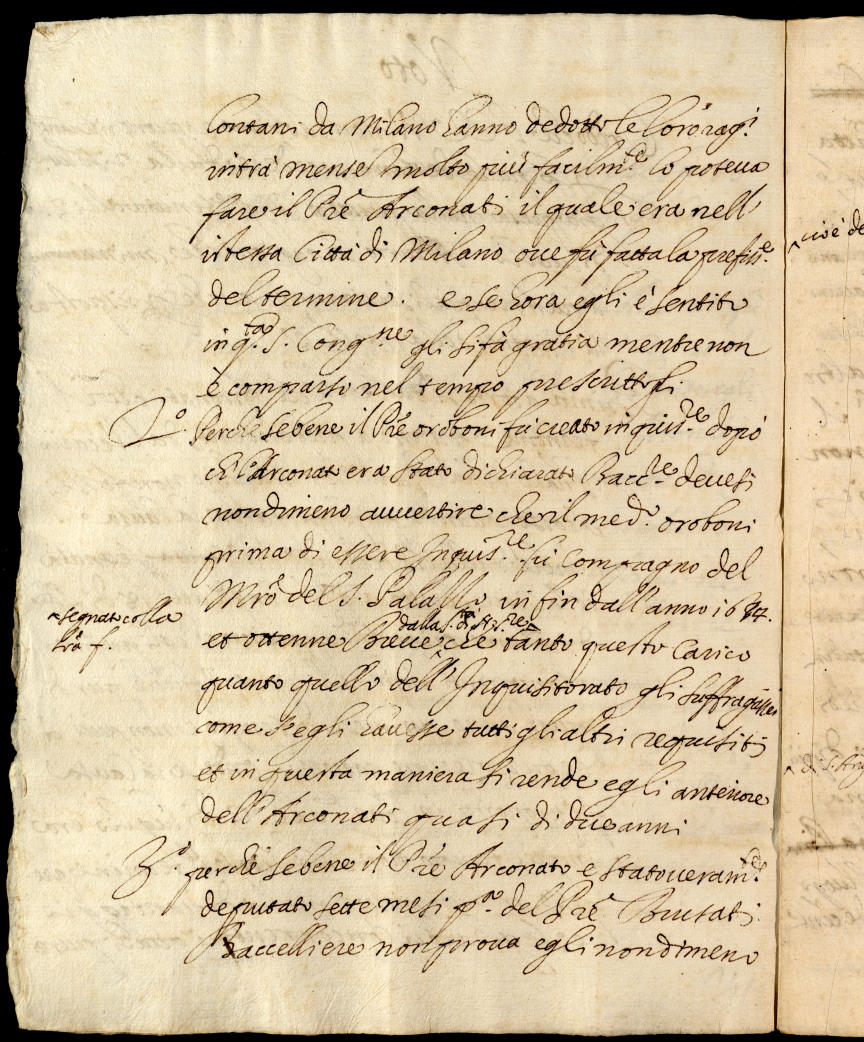 lontani da Milano hanno dedotto le loro rag.i
intra mense molto più facilm.te lo poteua
fare il Prê Arconati il quale era nell'
istessa Città di Milano oue fù fatta la prefiss.e
del termine. e se hora egli è sentito
in q.ta S. Cong.ne gli si fà gratia mentre non
è comparso nel tempo prescrittogli
2.º Perche se bene il Prê oroboni fù creato inquis.re dopò
ch'l'Arconato era stato dichiarato Bacc.re deuesi
nondimeno auuertire che il med.º oroboni
prima di essere Inquis.re fù Compagno del
Mrô del S. Palazzo in fin dall'anno
^segnato colla
lrâ f.
et ottenne Breue ^dalla che tanto questo Carico
quanto quello dell'Inquisitorato gli suffragasse
come s'egli hauesse tutti gli altri requisiti
et in questa maniera si rende egli anteriore
dell'Arconati quasi di due anni
3.º perchè se bene il Prê Arconato e stato ueram.te
deputato sette mesi p.a del Prê Brutati
Baccelliere non proua egli nondimeno
^cioè de
^di S.